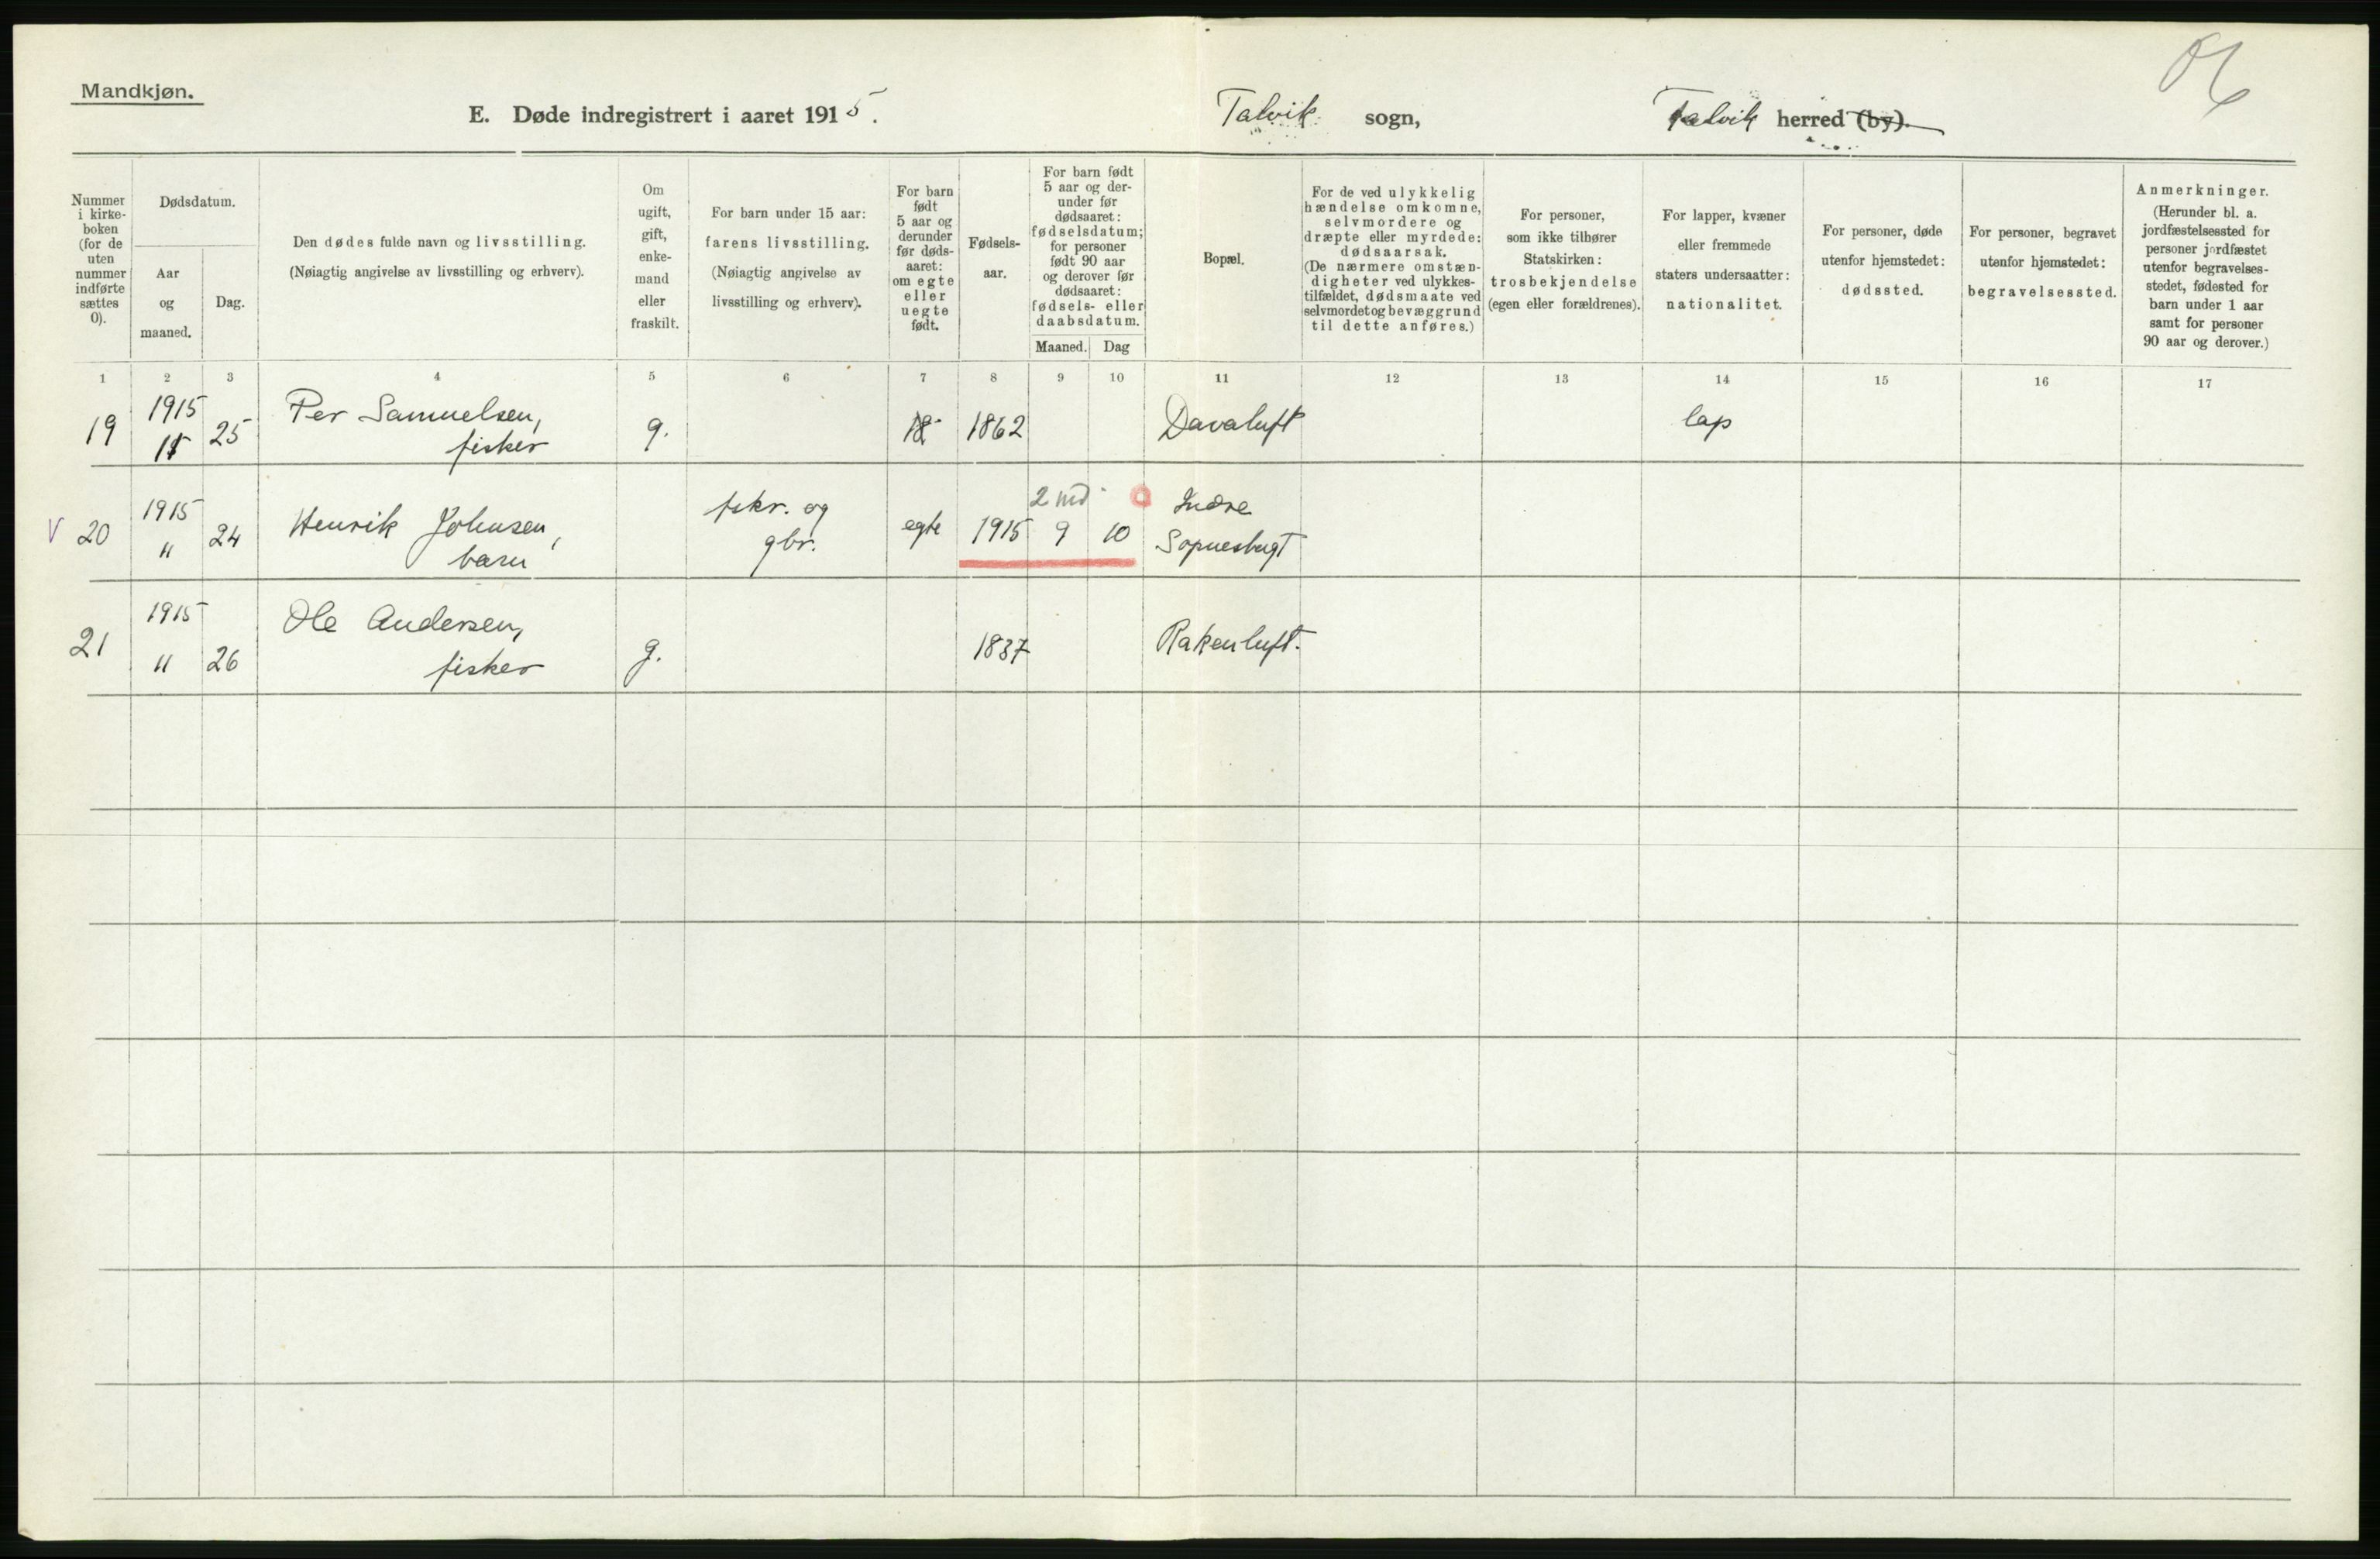 Mandkjøn.
E. Døde indregistrert i aaret 1915. Talvik sogn, Talvik herred (by).
Nummer i kirke-boken (for de uten nummer indførte sættes 0).
Dødsdatum.
Aar og maaned.
Dag.
Den dødes fulde navn og livsstilling.
(Nøiagtig angivelse av livsstilling og erhverv).
Om ugift, gift, enke-mand eller fraskilt.
For barn under 15 aar:
farens livsstilling.
(Nøiagtig angivelse av
livsstilling og erhverv).
For barn født 5 aar og derunder før døds-aaret: om egte eller uegte født.
Fødsels-aar.
For barn født 5 aar og der-under før dødsaaret: fødselsdatum; for personer født 90 aar og derover før dødsaaret: fødsels- eller daabsdatum.
Maaned. Dag
Bopæl.
For de ved ulykkelig hændelse omkomne, selvmordere og dræpte eller myrdede: dødsaarsak. (De nærmere omstæn-digheter ved ulykkes-tilfældet, dødsmaate ved selvmordet og bevæggrund til dette anføres.)
For personer, som ikke tilhører Statskirken: trosbekjendelse (egen eller forældrenes).
For lapper, kvæner eller fremmede staters undersaatter: nationalitet.
For personer, døde utenfor hjemstedet: dødssted.
For personer, begravet utenfor hjemstedet: begravelsessted.
Anmerkninger.
(Herunder bl. a. jordfæstelsessted for personer jordfæstet utenfor begravelses-stedet, fødested for barn under 1 aar samt for personer 90 aar og derover.)
1 2 3 4 5 6 7 8 9 10 11 12 13 14 15 16 17
1915 Per Samuelsen,
19 11 25 fisker g. 1862 Davaluft lap
1915 Henrik Johnsen, fskr. og 2 md Indre
V 20 " 24 barn gbr. egte 1915 9 10 Sopnesbugt
1915 Ole Andersen,
21 " 26 fisker g. 1837 Rakenluft.